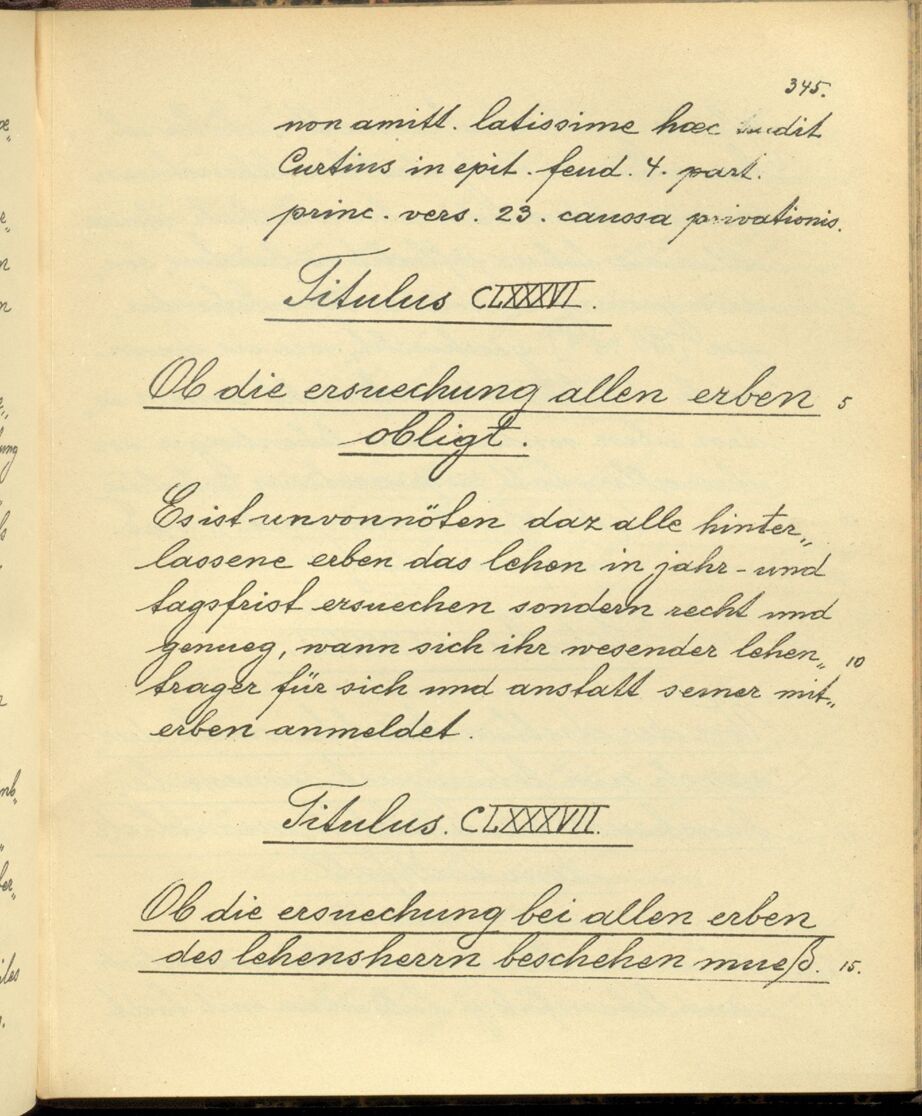 345.
non amitt. latissime hæc tradit
Curtius in epit. feud. 4. part.
princ. vers. 23. caussa privationis.
Titulus CLXXXVI.
Ob die ersuechung allen erben 5
obligt.
Es ist unvonnöten daz alle hinter„
lassene erben das lehen in jahr- und
tagsfrist ersuechen sondern recht und
genueg, wann sich ihr wesender lehen„ 10
trager für sich und anstatt seiner mit„
erben anmeldet.
Titulus. CLXXXVII.
Ob die ersuechung bei allen erben
des lehensherrn beschehen mueß. 15.